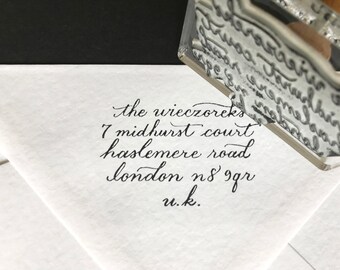 the wieczoreks
7 midhurst court
haslemere road
london n8 9qr
u.k.